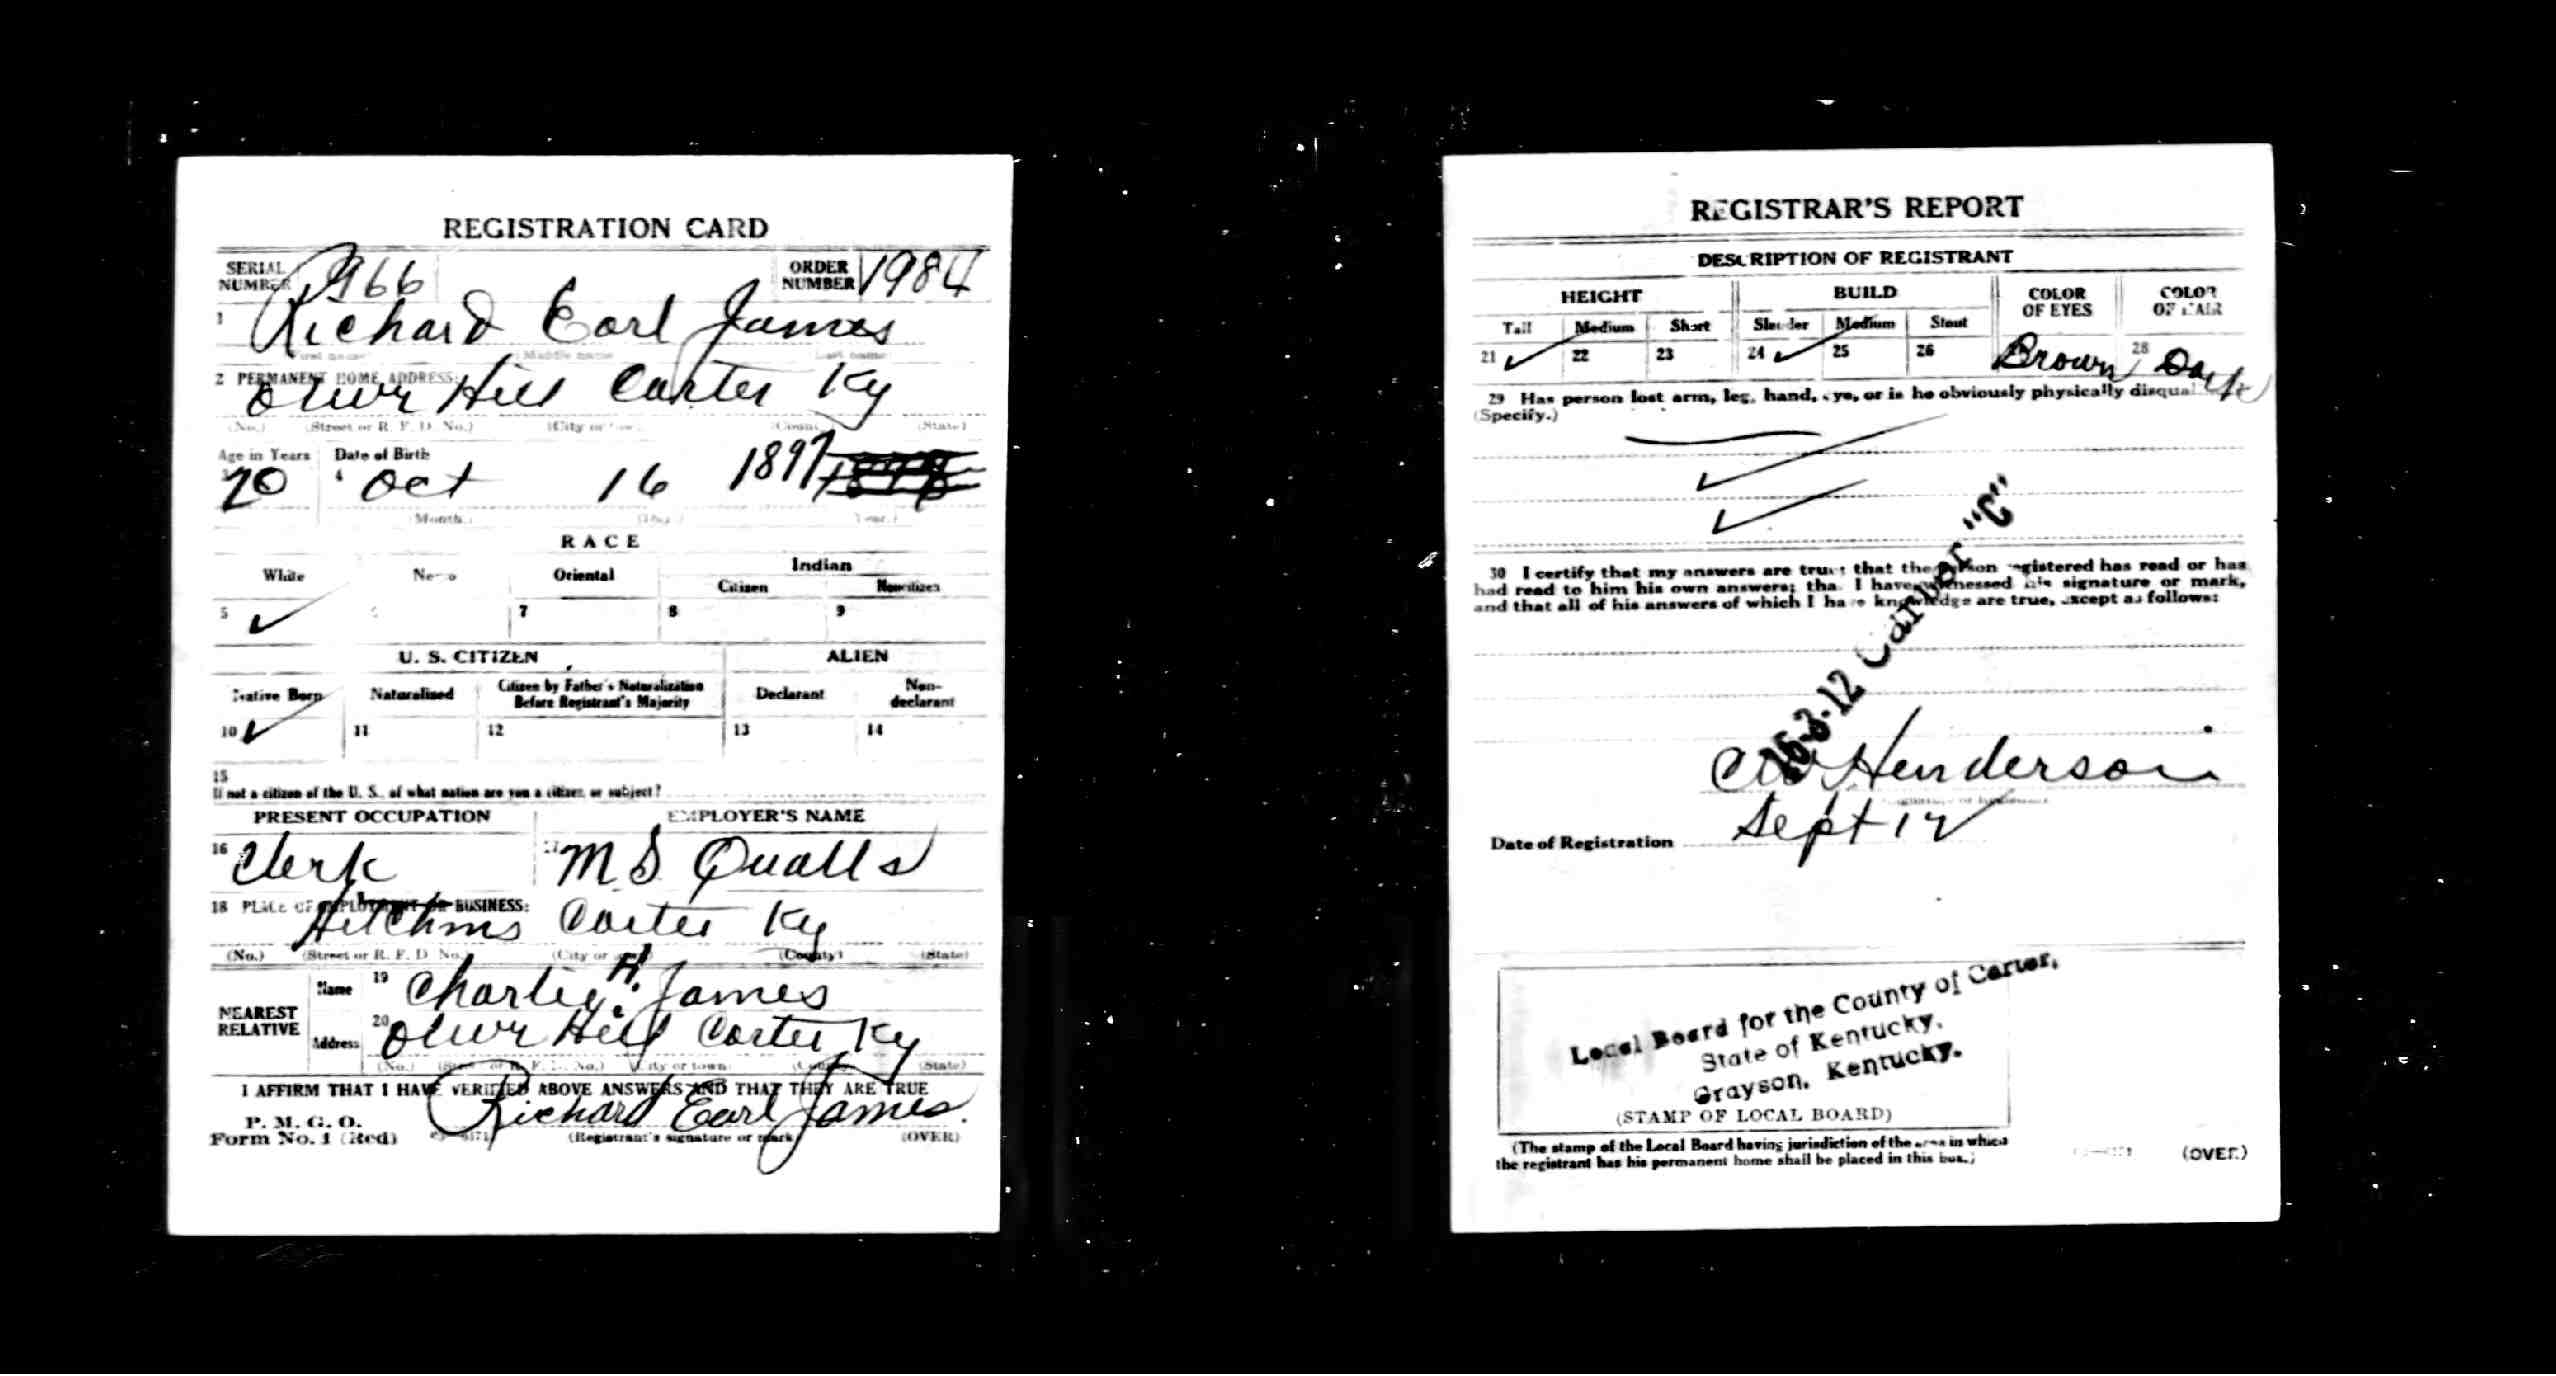 REGISTRATION CARD
SERIAL NUMBER 966 ORDER NUMBER 1984
1 Richard Earl James
First name Middle name Last name
2 PERMANENT HOME ADDRESS:
Olive Hill Carter Ky
(No.) (Street or R. F. D. No.) (City or town) (County) (State)
Age in Years Date of Birth
20 4 Oct 16 1897
(Month.) (Day.) (Year.)
RACE
White Negro Oriental Indian
Citizen Noncitizen
5 ✓ 7 8 9
U. S. CITIZEN ALIEN
Native Born Naturalized Citizen by Father's Naturalization Before Registrant's Majority Declarant Non-declarant
10 ✓ 11 12 13 14
15
If not a citizen of the U. S., of what nation are you a citizen or subject?
PRESENT OCCUPATION EMPLOYER'S NAME
16 Clerk 17 M S Qualls
18 PLACE OF EMPLOYMENT OR BUSINESS:
Hitchins Carter Ky
(No.) (Street or R. F. D. No.) (City or town) (County) (State)
NEAREST RELATIVE
Name 19 Charley H. James
Address 20 Olive Hill Carter Ky
(No.) (Street or R. F. D. No.) (City or town) (County) (State)
I AFFIRM THAT I HAVE VERIFIED ABOVE ANSWERS AND THAT THEY ARE TRUE
P. M. G. O.
Form No. 1 (Red) Richard Earl James.
(Registrant's signature or mark) (OVER)
REGISTRAR'S REPORT
DESCRIPTION OF REGISTRANT
HEIGHT BUILD COLOR OF EYES COLOR OF HAIR
Tall Medium Short Slender Medium Stout
21 ✓ 22 23 24 ✓ 25 26 Brown 28 Dark
29 Has person lost arm, leg, hand, eye, or is he obviously physically disqualified?
(Specify.)
30 I certify that my answers are true; that the person registered has read or has
had read to him his own answers; that I have witnessed his signature or mark,
and that all of his answers of which I have knowledge are true, except as follows:
16-3-12 Carter "C"
Henderson
Date of Registration Sept 12
Local Board for the County of Carter,
State of Kentucky,
Grayson, Kentucky.
(STAMP OF LOCAL BOARD)
(The stamp of the Local Board having jurisdiction of the area in which
the registrant has his permanent home shall be placed in this box.)
(OVER)